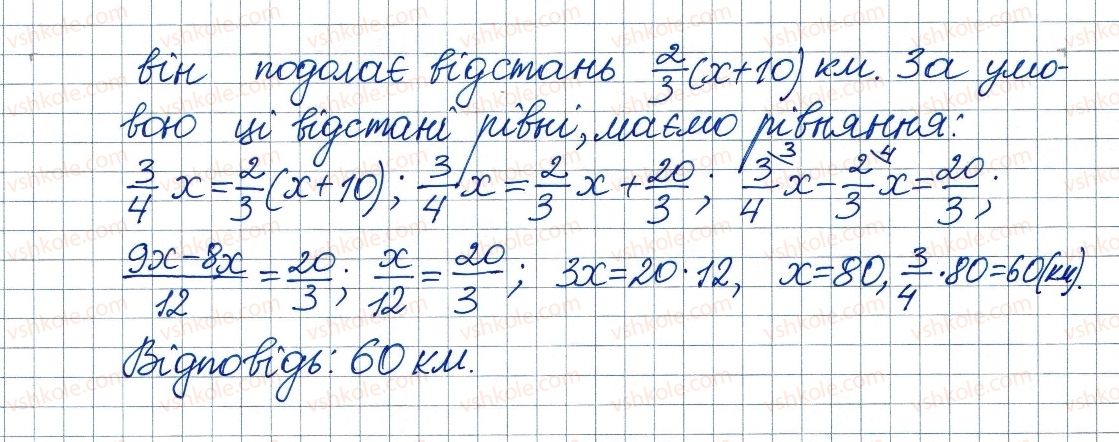 він подолає відстань 2/3(x+10) км. За умо-
вою ці відстані рівні, маємо рівняння:
3/4 x = 2/3(x+10); 3/4 x = 2/3 x + 20/3; 3/4 \3 x − 2/3 \4 x = 20/3;
(9x−8x)/12 = 20/3; x/12 = 20/3; 3x = 20·12, x = 80, 3/4·80 = 60(км).
Відповідь: 60 км.